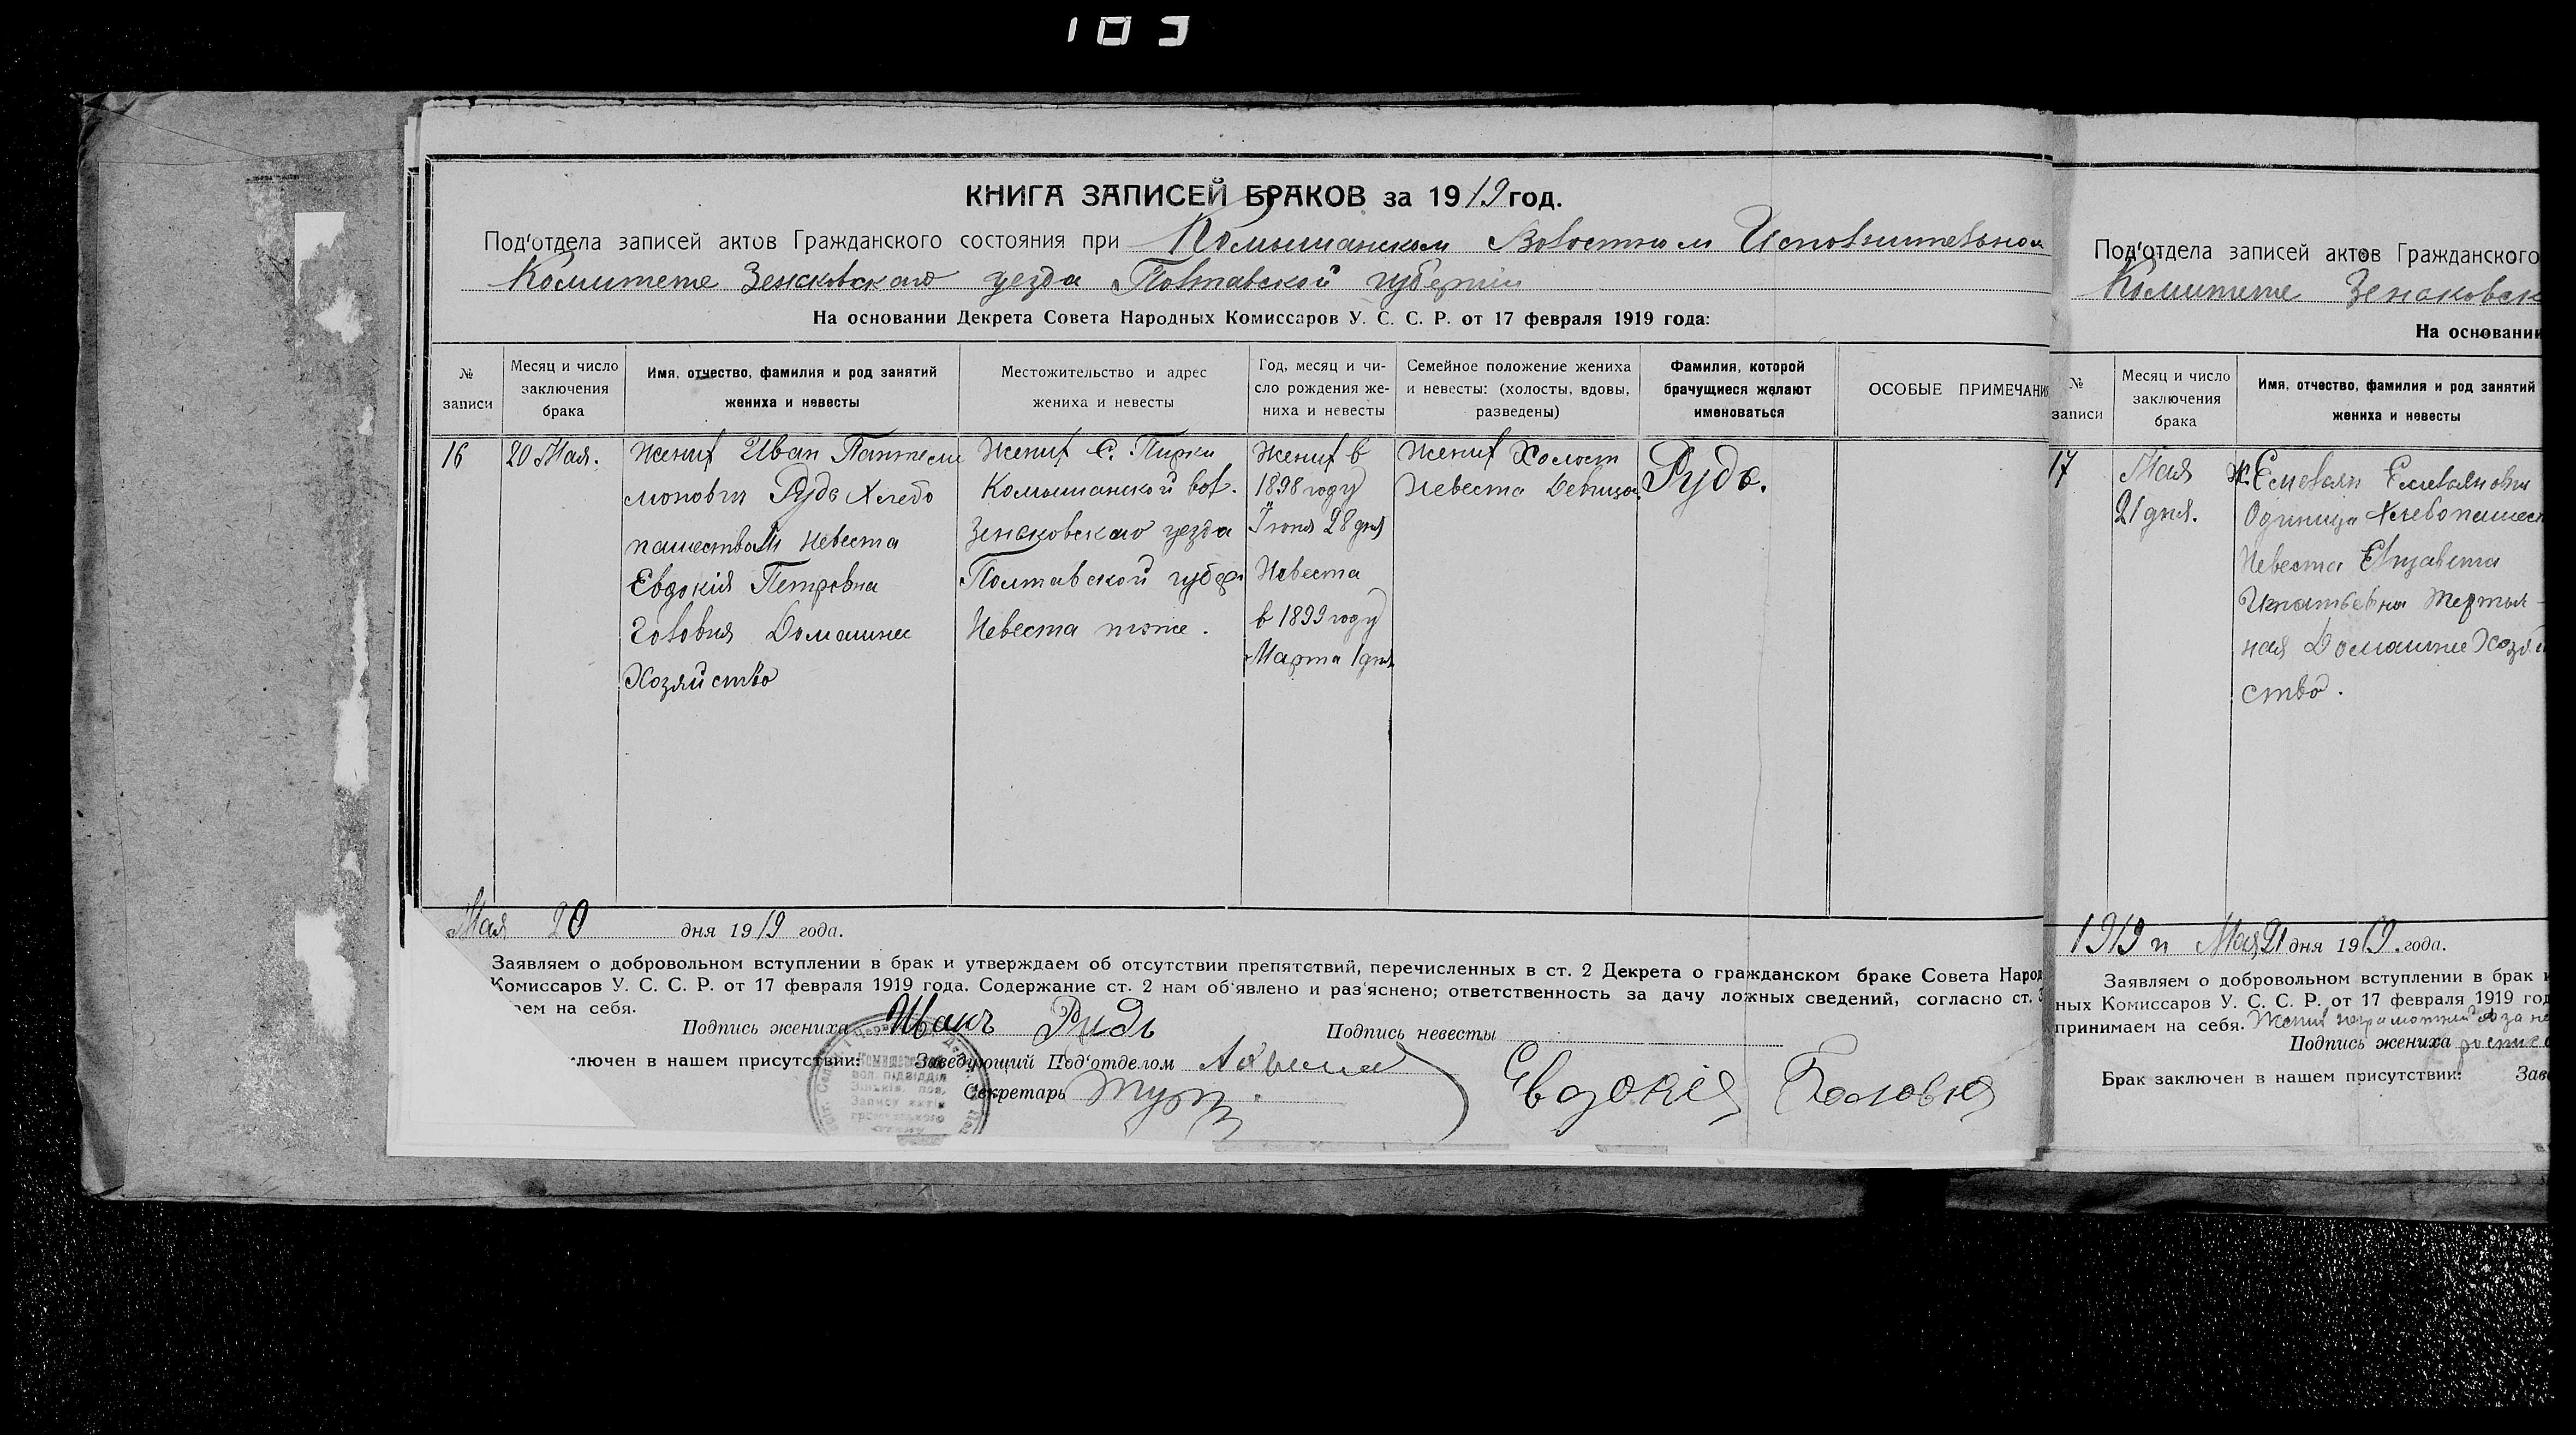 КНИГА ЗАПИСЕЙ БРАКОВ за 1919 год.
Под'отдела записей актов Гражданского состояния при Комышанском Волостном Исполнительном
Комитете Зеньковскаго уезда Полтавской губернии
На основании Декрета Совета Народных Комиссаров У. С. С. Р. от 17 февраля 1919 года:
№ записи
Месяц и число заключения брака
Имя, отчество, фамилия и род занятий жениха и невесты
Местожительство и адрес жениха и невесты
Год, месяц и число рождения жениха и невесты
Семейное положение жениха и невесты: (холосты, вдовы, разведены)
Фамилия, которой брачущиеся желают именоваться
ОСОБЫЕ ПРИМЕЧАНИ
16
20 Мая.
Жених Иван Пантели
монович Рудь Хлебо
пашество
невеста
Евдокія Петровна
Головня Домашнее
Хозяйство
Жених С. Пирки
Комышанской вол.
Зеньковскаго уезда
Полтавской губер
Невеста тоже.
Жених в
1898 году
Іюня 28 дня
Невеста
в 1899 году
Марта 1 дня
Жених Холост
Невеста Девица
Рудь.
Мая 20 дня 1919 года.
Заявляем о добровольном вступлении в брак и утверждаем об отсутствии препятствий, перечисленных в ст. 2 Декрета о гражданском браке Совета Народ
Комиссаров У. С. С. Р. от 17 февраля 1919 года. Содержание ст. 2 нам об'явлено и раз'яснено; ответственность за дачу ложных сведений, согласно ст.
аем на себя.
Подпись жениха Иванъ Рудь
Подпись невесты
лючен в нашем присутствии: Заведующий Под'отделом
Секретарь
Евдокія Головня
Под'отдела записей актов Гражданского
Комитете Зеньковск
На основании
№ записи
Месяц и число заключения брака
Имя, отчество, фамилия и род занятий жениха и невесты
17
Мая
21 дня.
Ж. Емельян Емельянович
Одиница Хлебопашест
Невеста Елизавета
Игнатьевна
ная Домашнее Хозяй
ство.
1919 г. Мая 21 дня 1919 года.
Заявляем о добровольном вступлении в брак и
ных Комиссаров У. С. С. Р. от 17 февраля 1919 год
принимаем на себя. Жених неграмотный за не
Подпись жениха
Брак заключен в нашем присутствии: Зав